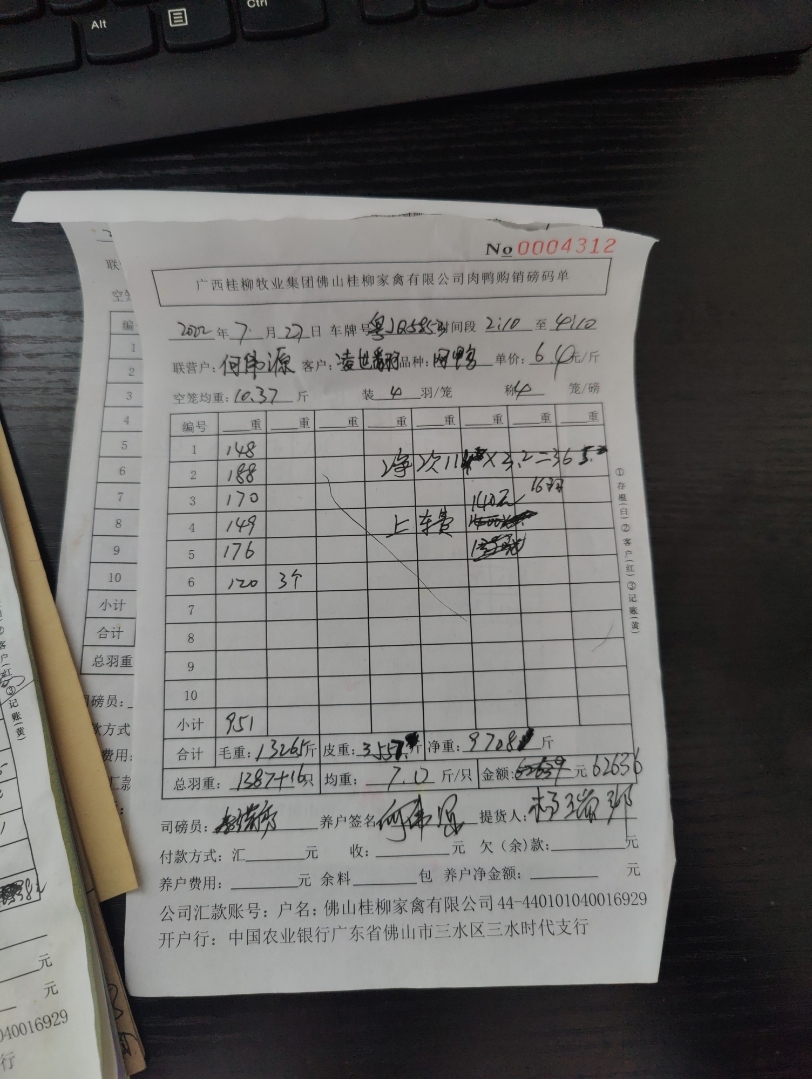 Alt
Ctrl
No 0004312
广西桂柳牧业集团佛山桂柳家禽有限公司肉鸭购销磅码单
2022年7月27日 车牌号 时间段 2:10 至 4:10
联营户:何伟源 客户: 品种: 单价:6.4元/斤
空笼均重:10.37斤 装4羽/笼 称4笼/磅
编号 重 重 重 重 重 重 重
1 148
2 188
3 170 140元 16羽
4 149 上车费
5 176
6 120 3个
7
8
9
10
小计 951
合计 毛重:13265斤 皮重: 斤 净重: 斤
总羽重:1387+16只 均重:7.0斤/只 金额: 元 62636
司磅员: 养户签名 提货人:
付款方式:汇 元 收: 元 欠(余)款: 元
养户费用: 元 余料 包 养户净金额: 元
公司汇款账号:户名:佛山桂柳家禽有限公司44-440101040016929
开户行:中国农业银行广东省佛山市三水区三水时代支行
①存根(白)②客户(红)③记账(黄)
联
空笼
编
1
2
3
4
5
6
7
8
9
10
小计
合计
总羽重
司磅员:
款方式
费用:
汇款
记账(黄)
元
元
040016929
行